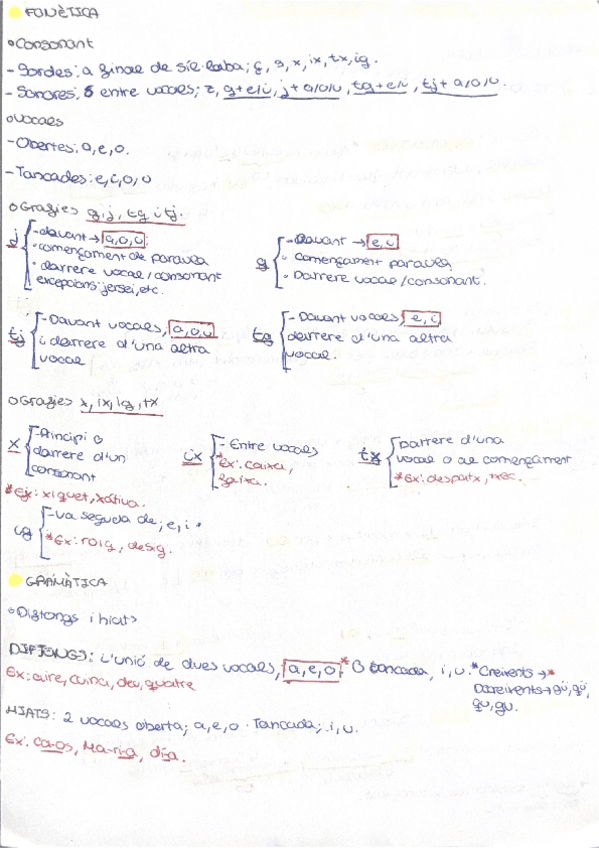 FONÈTICA
Consonant
- Sordes: a final de síl·laba; ç, s, x, ix, tx, ig.
- Sonores: S entre vocals; z, g+e/i, j+a/o/u, tg+e/i, tj+a/o/u.
Vocals
- Obertes: a, e, o.
- Tancades: e, i, o, u
Grafies g, j, tg i tj.
j - davant → a, o, u
· començament de paraula
· darrere vocal / consonant
excepcions: jersei, etc.
g - Davant → e, i
· Començament paraula
· Darrere vocal / consonant.
tj - Davant vocals, a, o, u
i darrere d'una altra
vocal
tg - Davant vocals, e, i
darrere d'una altra
vocal.
Grafies x, ix, ig, tx
x - Principi o
darrere d'un
consonant
*ex: xiquet, xàtiva.
ix - Entre vocals
*Ex: caixa,
tx Darrere d'una
vocal o al començament
*Ex: despatx,
ig - Va seguida de; e, i
*Ex: roig, desig.
GRAMÀTICA
Diftongs i hiats
DIFTONGS: L'unió de dues vocals, a, e, o * O tancada, i, u. *Creixents → *
Ex: aire, cuina, deu, quatre
Decreixents → gü, qü,
qu, gu.
HIATS: 2 vocals oberta; a, e, o · Tancada; i, u.
Ex: ca-os, Ma-ri-a, di-a.